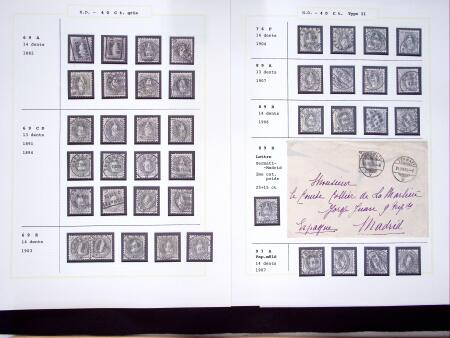 S.D. - 40 Ct. gris
69 A
14 dents
1882
69 CD
13 dents
1891
1894
69 E
14 dents
1903
S.D. - 40 Ct. Type II
74 F
14 dents
1904
89 A
13 dents
1907
89 B
14 dents
1906
89 B
Lettre
Zermatt-
-Madrid
2me cat.
poids
25+15 ct
Monsieur
le Comte
de La
Jorge Juan 9
Espagne
Madrid
97 A
Pap.mêlé
14 dents
1907